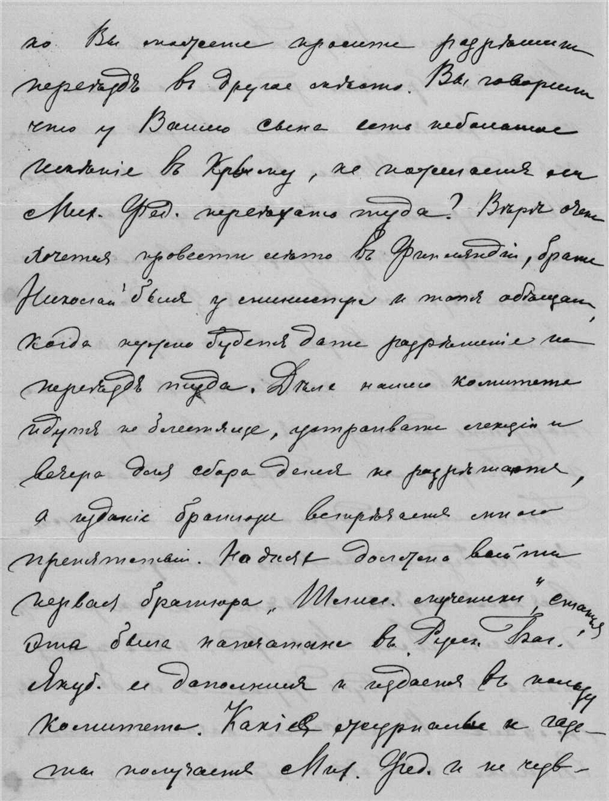 но Вы можете просить разрѣшить
переѣздъ въ другое мѣсто. Вы говорили
что у Вашего сына есть небольшое
имѣніе въ Крыму, не пожелаетъ ли
Мих. Фед. переѣхать туда? Вѣрѣ очень
хочется провести лѣто въ Финляндіи, братъ
Николай былъ у министра и тотъ обѣщалъ,
когда нужно будетъ дать разрѣшеніе на
переѣздъ туда. Дѣла нашего комитета
идутъ не блестяще, устраивать лекціи и
вечера для сбора денегъ не разрѣшаютъ,
а изданіе брошюръ встрѣчаетъ много
препятствій. На дняхъ должна выйти
первая брошюра „Шлисс. мученики“, статья
эта была напечатана въ Русск. Бог.
Якуб. ее дополнилъ и издаетъ въ пользу
комитета. Какіе журналы и газе-
ты получаетъ Мих. Фед. и не чувв-